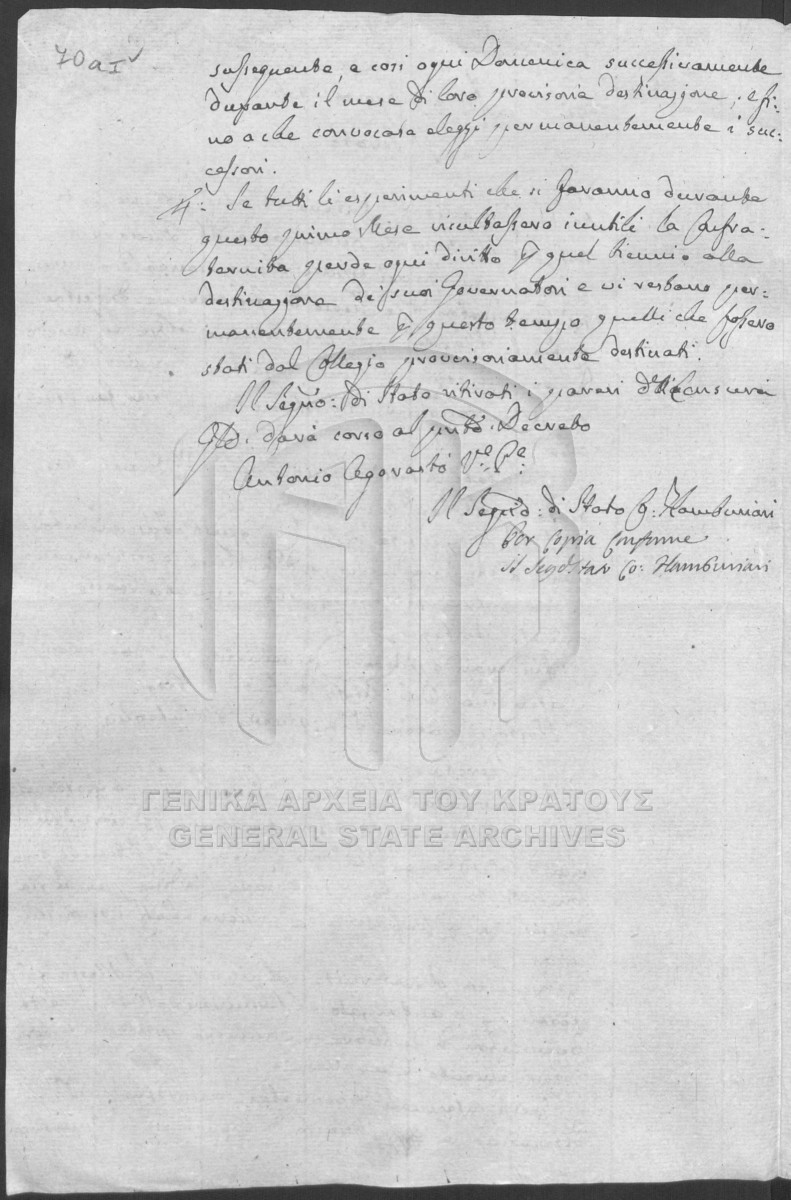 70aI v
sussequente, e cosi ogni Domenica successivamente
durante il mese di loro provisoria destinazione, e fi=
no a che convocata eleggi permanentemente i suc=
cessori.
4: Se tutti li esperimenti che si faranno durante
questo primo Mese risultassero inutili la Confra=
ternita perde ogni diritto p quel biennio alla
destinazione de suoi Governatori e vi restano per=
manentemente p questo tempo quelli che fossero
stati dal Collegio provisoriamente destinati.
Il Segrio: di Stato ritirati i pareri
darà corso al pnte. Decreto
Antonio Vce. Pe:
Il Segrio: di Stato G: Flamburiari
Per Copia Conforme
Il Seg di Stato Co: Flamburiari
ΓΕΝΙΚΑ ΑΡΧΕΙΑ ΤΟΥ ΚΡΑΤΟΥΣ
GENERAL STATE ARCHIVES